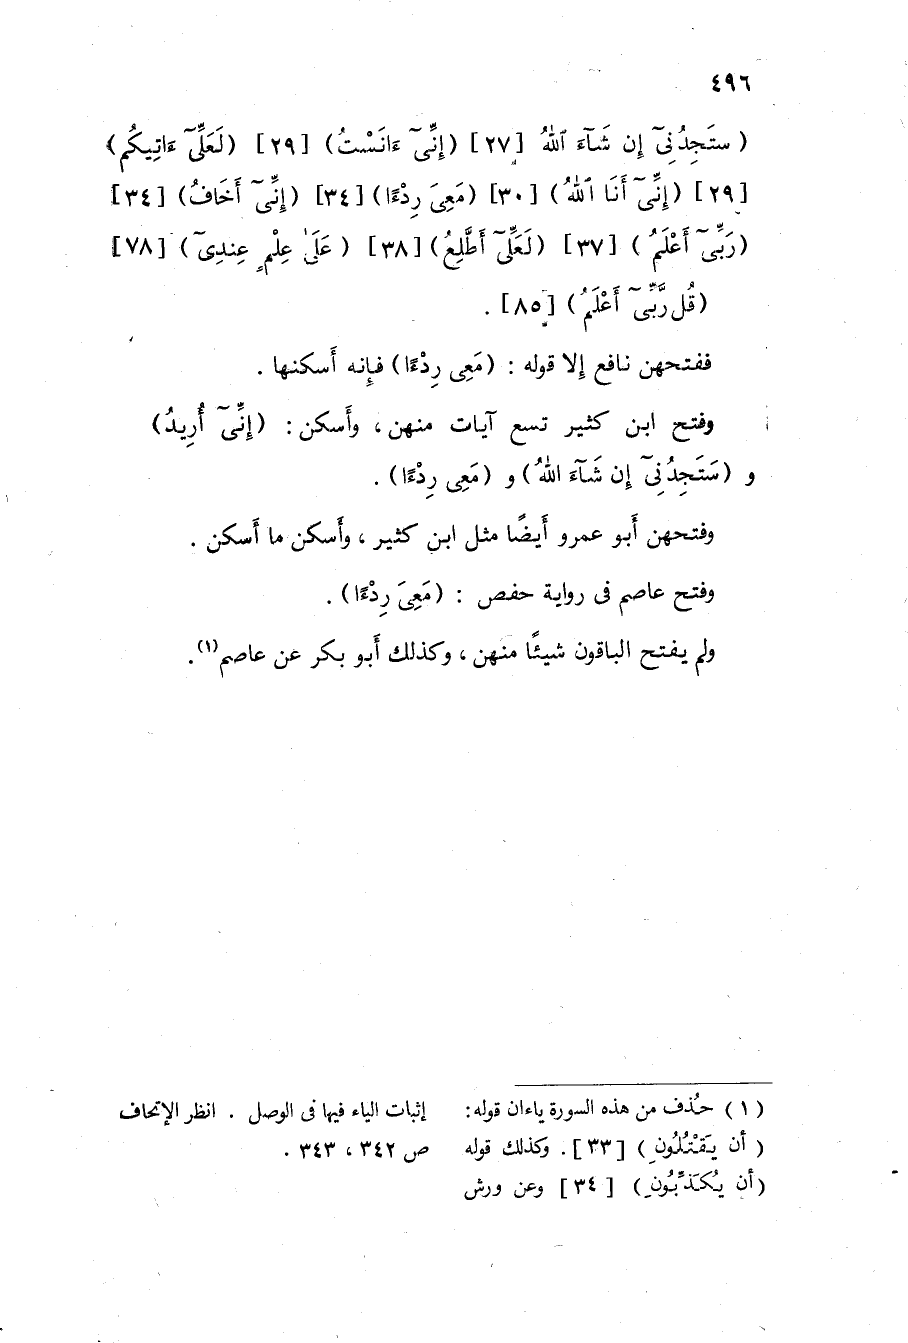 ٤٩٦
( ستَجِدُنِىٓ إِن شَآءَ ٱللهُ [٢٧] (إِنِّىٓ ءَانَسْتُ) [٢٩] (لَعَلِّىٓ ءَاتِيكُم)
[٢٩] (إِنِّىٓ أَنَا ٱللهُ) [٣٠] (مَعِىَ رِدْءًا) [٣٤] (إِنِّىٓ أَخَافُ) [٣٤]
(رَبِّىٓ أَعْلَمُ ) [٣٧] (لَعَلِّىٓ أَطَّلِعُ) [٣٨] ( عَلَىٰ عِلْمٍ عِندِىٓ) [٧٨]
(قُل رَّبِّىٓ أَعْلَمُ) [٨٥] .
ففتحهن نافع إلا قوله : (مَعِى رِدْءًا) فإنه أسكنها .
وفتح ابن كثير تسع آيات منهن ، وأسكن : (إِنِّىٓ أُرِيدُ)
و (سَتَجِدُنِىٓ إِن شَآءَ اللهُ) و (مَعِى رِدْءًا) .
وفتحهن أبو عمرو أيضًا مثل ابن كثير ، وأسكن ما أسكن .
وفتح عاصم فى رواية حفص : (مَعِىَ رِدْءًا) .
ولم يفتح الباقون شيئًا منهن ، وكذلك أبو بكر عن عاصم(١).
(١) حُذف من هذه السورة ياءان قوله:
( أن يَقْتُلُونِ ) [٣٣] . وكذلك قوله
(أن يُكَذِّبُونِ ) [٣٤] وعن ورش
إثبات الياء فيها فى الوصل . انظر الإتحاف
ص ٣٤٢ ، ٣٤٣ .